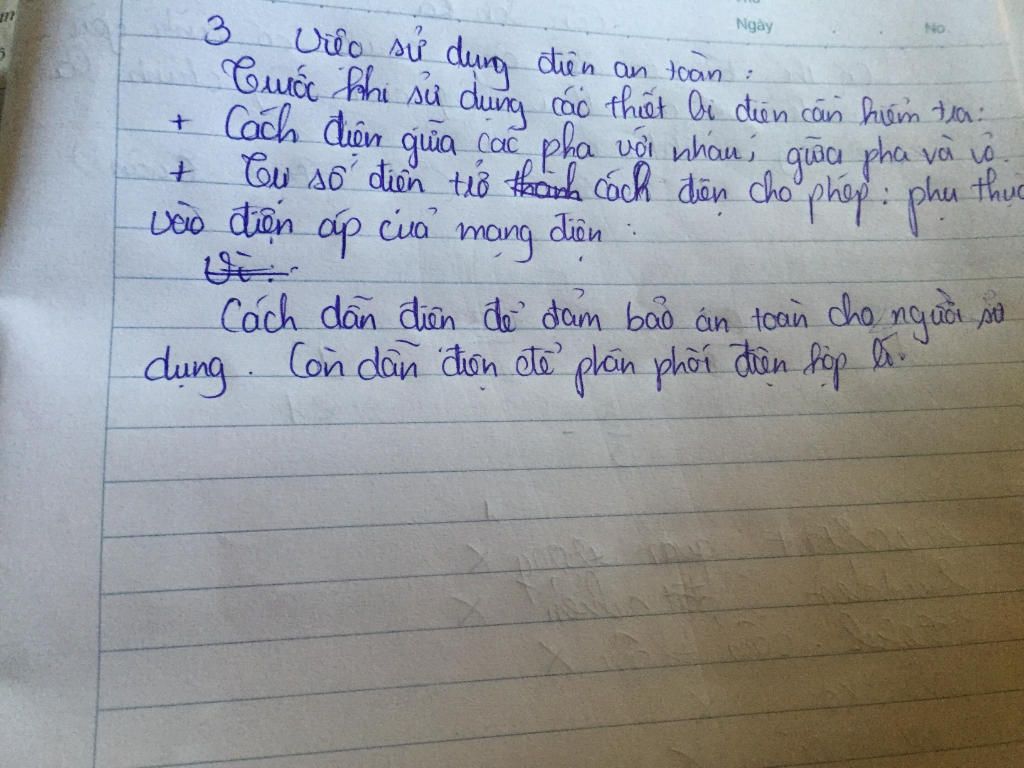 Ngày No.
3 Việc sử dụng điện an toàn:
Trước khi sử dụng các thiết bị điện cần kiểm tra:
+ Cách điện giữa các pha với nhau, giữa pha và vỏ.
+ Trị số điện trở thành cách điện cho phép: phụ thuộc
vào điện áp của mạng điện.
Vì:
Cách dẫn điện để đảm bảo an toàn cho người sử
dụng. Còn dẫn điện để phân phối điện hợp lí.